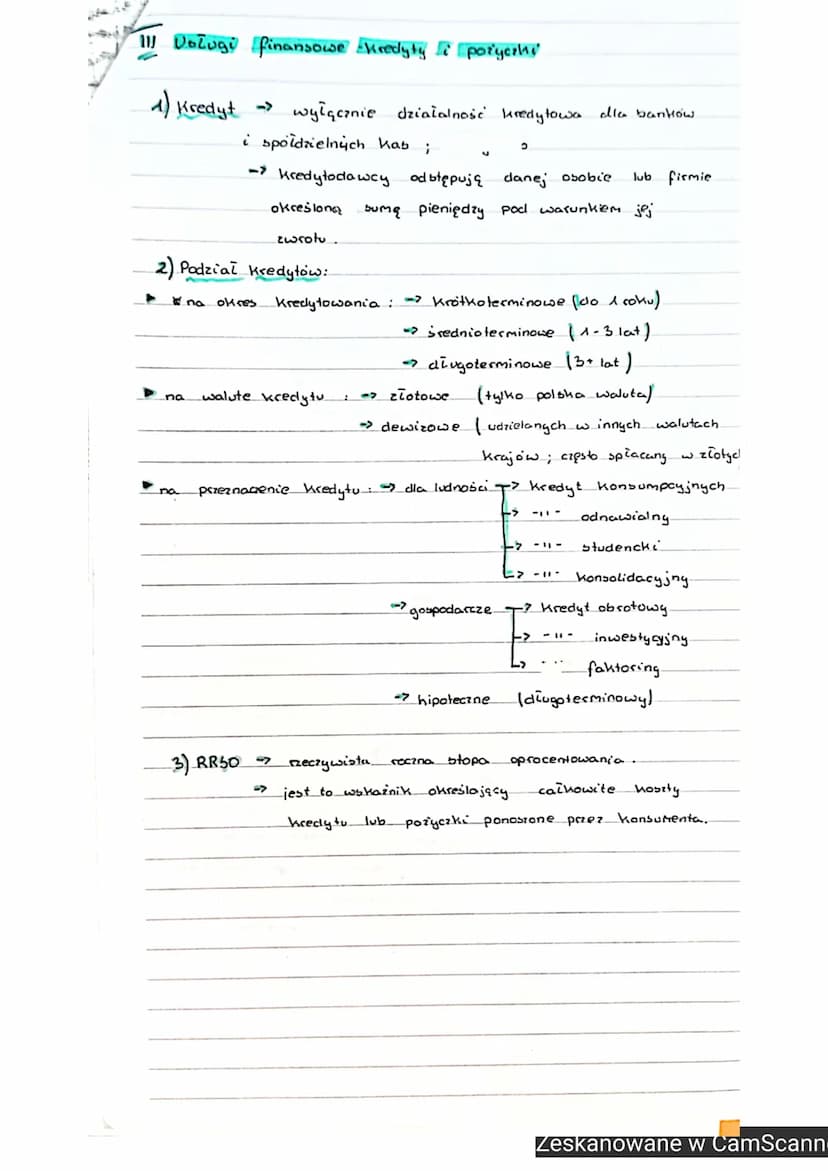 III Usługi finansowe - kredyty i pożyczki
1) Kredyt → wyłącznie działalność kredytowa dla banków
i spółdzielnych kas ;
→ kredytodawcy odstępują danej osobie lub firmie
określoną sumę pieniędzy pod warunkiem jej
zwrotu .
2) Podział kredytów:
▶ na okres kredytowania : → krótkoterminowe (do 1 roku)
→ średnioterminowe (1-3 lat)
→ długoterminowe (3+ lat)
▶ na walute kredytu : → złotowe (tylko polska waluta)
→ dewizowe ( udzielanych w innych walutach
krajów ; często spłacany w złotyc
▶ na przeznaczenie kredytu : → dla ludności → kredyt konsumpcyjnych
→ -11- odnawialny
→ -11- studencki
→ -11- konsolidacyjny
→ gospodarcze → kredyt obrotowy
→ -11- inwestycyjny
→ -11- faktoring
→ hipoteczne (długoterminowy)
3) RRSO → rzeczywista roczna stopa oprocentowania .
→ jest to wskaźnik określający całkowite koszty
kredytu lub pożyczki ponoszone przez konsumenta.
Zeskanowane w CamScann